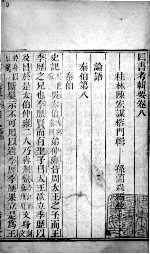 四書考輯要卷八
桂林陳宏謀榕門輯
孫蘭森
論語
泰伯第八
泰伯
史記吳太伯弟仲雍皆周太王之子而王
季歷之兄也季歷賢而有聖子昌太王欲立季歷以
及昌於是太伯仲雍二人乃奔荆蠻文身
斷髮示不可用以避季歷季歷果立是爲